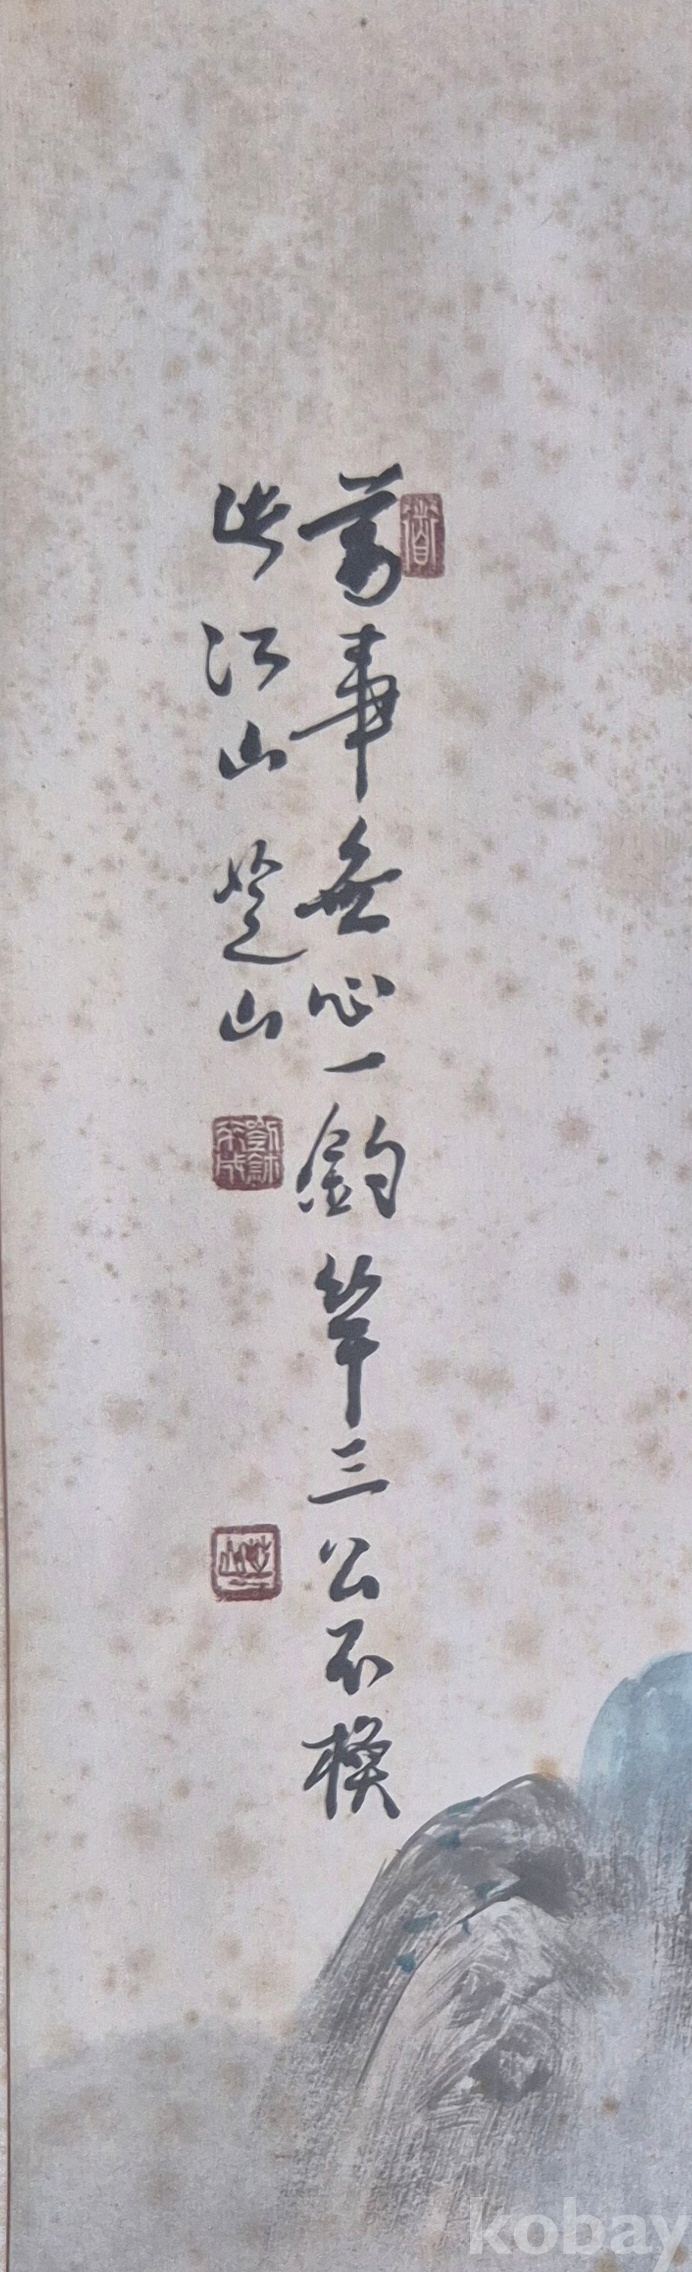 萬事無心一釣竿三公不換
此江山
kobay